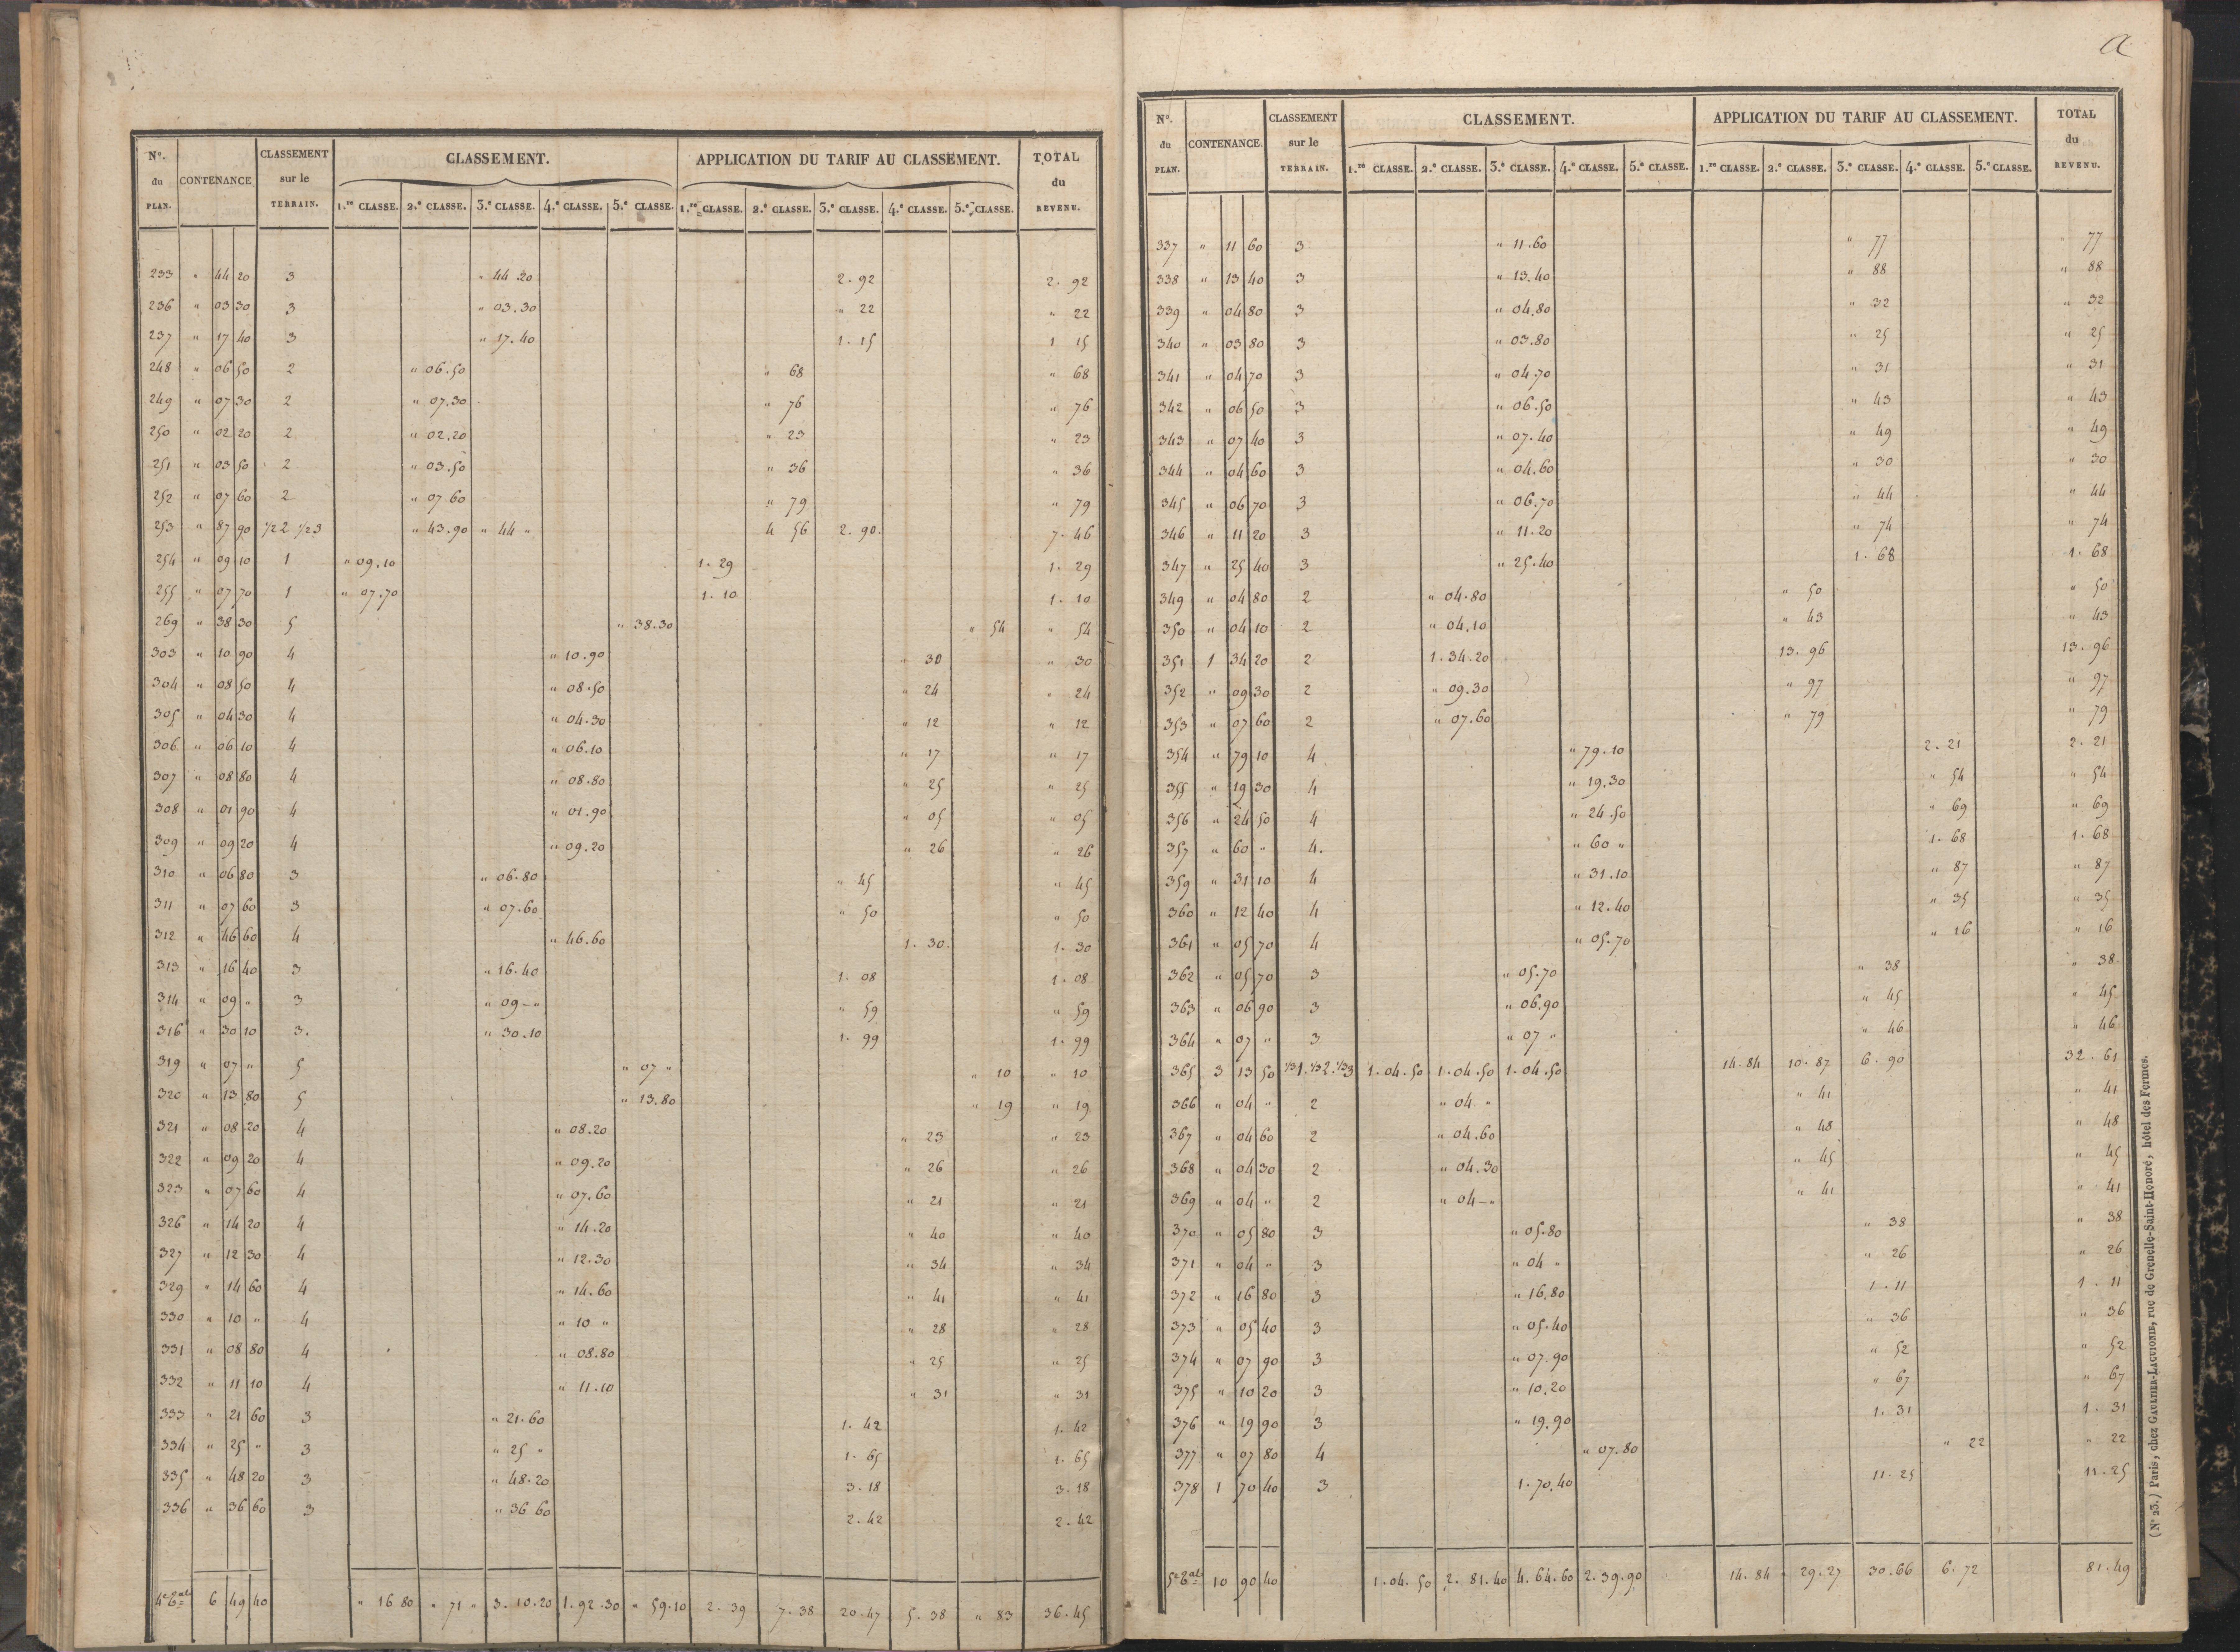 N°. du PLAN. CONTENANCE. CLASSEMENT sur le TERRAIN. CLASSEMENT. APPLICATION DU TARIF AU CLASSEMENT. TOTAL du REVENU.
1.re CLASSE. 2.e CLASSE. 3.e CLASSE. 4.e CLASSE. 5.e CLASSE. 1.re CLASSE. 2.e CLASSE. 3.e CLASSE. 4.e CLASSE. 5.e CLASSE.
233 " 44 20 3 " 44.20 2.92 2.92
236 " 03 30 3 " 03.30 " 22 " 22
237 " 17 40 3 " 17.40 1.15 1 15
248 " 06 50 2 " 06.50 " 68 " 68
249 " 07 30 2 " 07.30 " 76 " 76
250 " 02 20 2 " 02.20 " 23 " 23
251 " 03 50 2 " 03.50 " 36 " 36
252 " 07 60 2 " 07 60 " 79 " 79
253 " 87 90 1/2 2 1/2 3 " 43.90 " 44 " 4 56 2.90. 7.46
254 " 09 10 1 " 09.10 1.29 1.29
255 " 07 70 1 " 07.70 1.10 1.10
269 " 38 30 5 " 38.30 " 54 " 54
303 " 10 90 4 " 10.90 " 30 " 30
304 " 08 50 4 " 08.50 " 24 " 24
305 " 04 30 4 " 04.30 " 12 " 12
306 " 06 10 4 " 06.10 " 17 " 17
307 " 08 80 4 " 08.80 " 25 " 25
308 " 01 90 4 " 01.90 " 05 " 05
309 " 09 20 4 " 09.20 " 26 " 26
310 " 06 80 3 " 06.80 " 45 " 45
311 " 07 60 3 " 07.60 " 50 " 50
312 " 46 60 4 " 46.60 1.30. 1.30
313 " 16 40 3 " 16.40 1.08 1.08
314 " 09 " 3 " 09 - " " 59 " 59
316 " 30 10 3. " 30.10 1.99 1.99
319 " 07 " 5 " 07 " " 10 " 10
320 " 13 80 5 " 13.80 " 19 " 19
321 " 08 20 4 " 08.20 " 23 " 23
322 " 09 20 4 " 09.20 " 26 " 26
323 " 07 60 4 " 07.60 " 21 " 21
326 " 14 20 4 " 14.20 " 40 " 40
327 " 12 30 4 " 12.30 " 34 " 34
329 " 14 60 4 " 14.60 " 41 " 41
330 " 10 " 4 " 10 " " 28 " 28
331 " 08 80 4 " 08.80 " 25 " 25
332 " 11 10 4 " 11.10 " 31 " 31
333 " 21 60 3 " 21.60 1.42 1.42
334 " 25 " 3 " 25 " 1.65 1.65
335 " 48 20 3 " 48.20 3.18 3.18
336 " 36 60 3 " 36 60 2.42 2.42
6 49 40 " 16 80 " 71 " 3.10.20 1.92.30 " 59.10 2.39 7.38 20.47 5.38 " 83 36.45
a
N°. du PLAN. CONTENANCE. CLASSEMENT sur le TERRAIN. CLASSEMENT. APPLICATION DU TARIF AU CLASSEMENT. TOTAL du REVENU.
1.re CLASSE. 2.e CLASSE. 3.e CLASSE. 4.e CLASSE. 5.e CLASSE. 1.re CLASSE. 2.e CLASSE. 3.e CLASSE. 4.e CLASSE. 5.e CLASSE.
337 " 11 60 3 " 11.60 " 77 " 77
338 " 13 40 3 " 13.40 " 88 " 88
339 " 04 80 3 " 04.80 " 32 " 32
340 " 03 80 3 " 03.80 " 25 " 25
341 " 04 70 3 " 04.70 " 31 " 31
342 " 06 50 3 " 06.50 " 43 " 43
343 " 07 40 3 " 07.40 " 49 " 49
344 " 04 60 3 " 04.60 " 30 " 30
345 " 06 70 3 " 06.70 " 44 " 44
346 " 11 20 3 " 11.20 " 74 " 74
347 " 25 40 3 " 25.40 1.68 1.68
349 " 04 80 2 " 04.80 " 50 " 50
350 " 04 10 2 " 04.10 " 43 " 43
351 1 34 20 2 1.34.20 13.96 13.96
352 " 09 30 2 " 09.30 " 97 " 97
353 " 07 60 2 " 07.60 " 79 " 79
354 " 79 10 4 " 79.10 2.21 2.21
355 " 19 30 4 " 19.30 " 54 " 54
356 " 24 50 4 " 24.50 " 69 " 69
357 " 60 " 4. " 60 " 1.68 1.68
359 " 31 10 4 " 31.10 " 87 " 87
360 " 12 40 4 " 12.40 " 35 " 35
361 " 05 70 4 " 05.70 " 16 " 16
362 " 05 70 3 " 05.70 " 38 " 38
363 " 06 90 3 " 06.90 " 45 " 45
364 " 07 " 3 " 07 " " 46 " 46
365 3 13 50 1/3 1. 1/3 2. 1/3 3 1.04.50 1.04.50 1.04.50 14.84 10.87 6.90 32.61
366 " 04 " 2 " 04 " " 41 " 41
367 " 04 60 2 " 04.60 " 48 " 48
368 " 04 30 2 " 04.30 " 45 " 45
369 " 04 " 2 " 04 - " " 41 " 41
370 " 05 80 3 " 05.80 " 38 " 38
371 " 04 " 3 " 04 " " 26 " 26
372 " 16 80 3 " 16.80 1.11 1.11
373 " 05 40 3 " 05.40 " 36 " 36
374 " 07 90 3 " 07.90 " 52 " 52
375 " 10 20 3 " 10.20 " 67 " 67
376 " 19 90 3 " 19.90 1.31 1.31
377 " 07 80 4 " 07.80 " 22 " 22
378 1 70 40 3 1.70.40 11.25 11.25
10 90 40 1.04.50 2.81.40 4.64.60 2.39.90 14.84 29.27 30.66 6.72 81.49
(N° 23.) Paris, chez GAULTIER-LAGUIONIE, rue de Grenelle-Saint-Honoré, hôtel des Fermes.